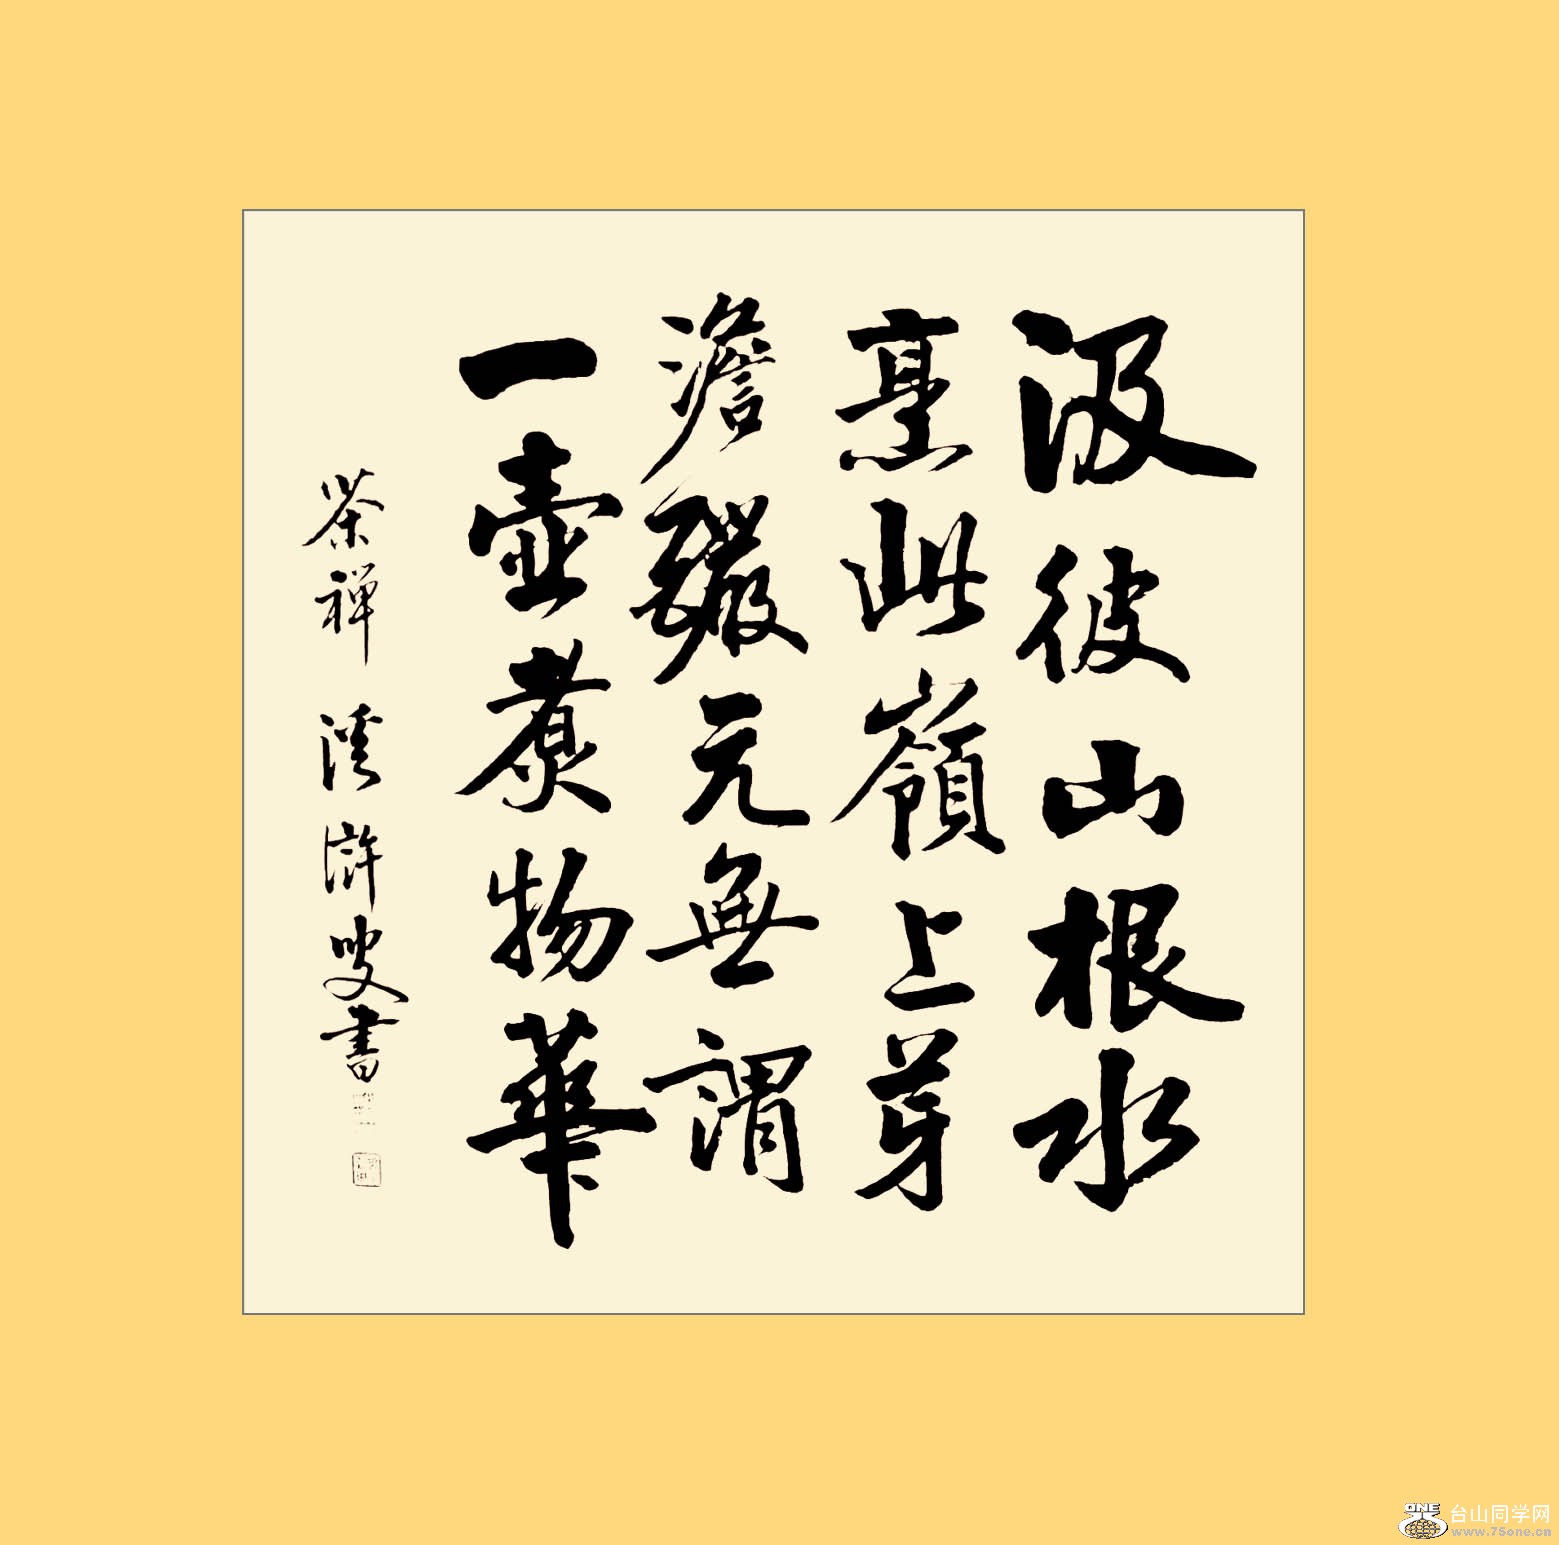 汲彼山根水
烹此嶺上芽
澹啜元無謂
一壺煮物華
茶禅 溪滸叟書
ONE
台山同学网
www.75one.cn